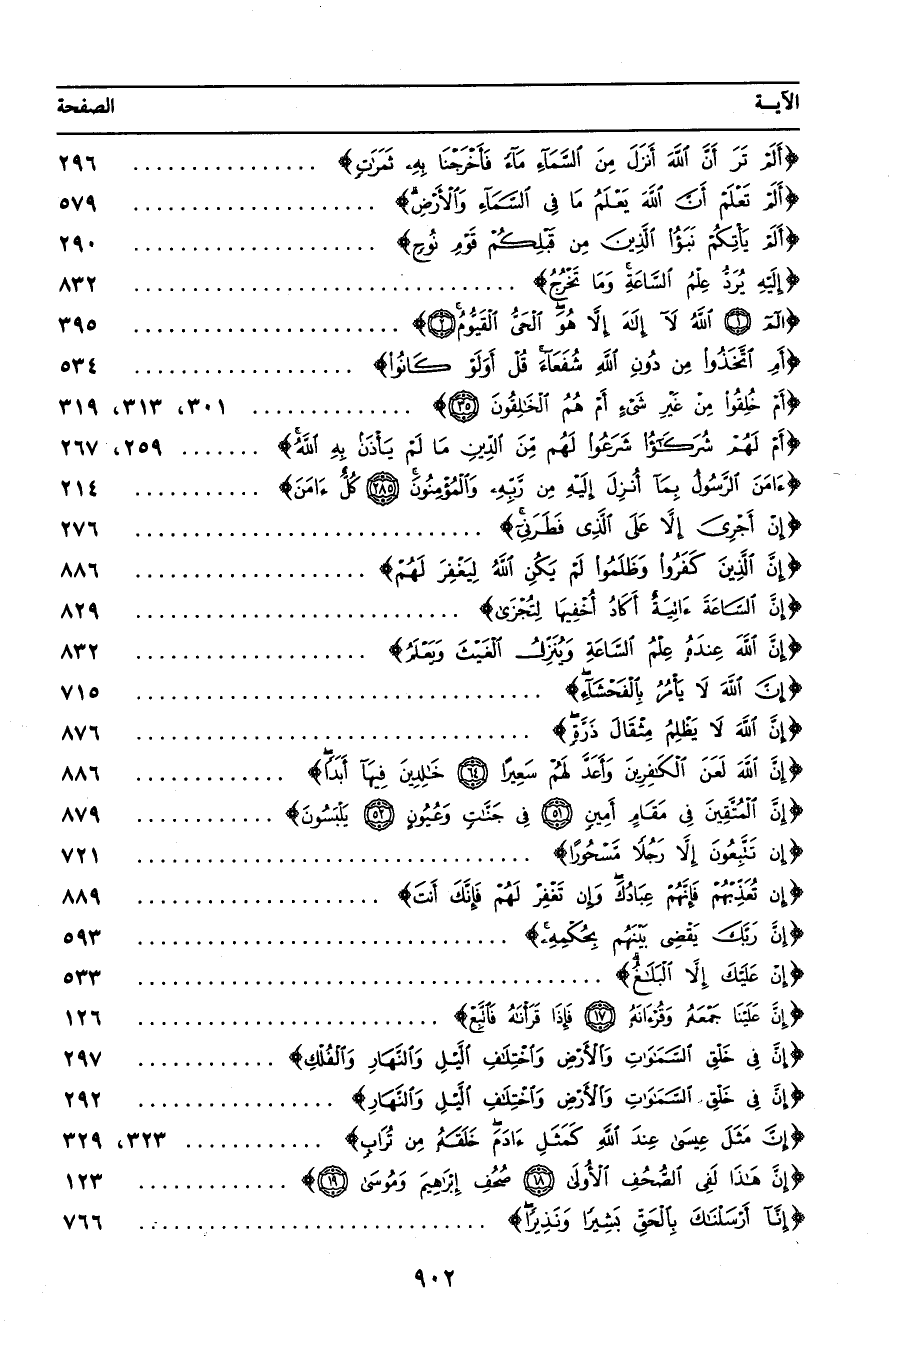 الآيـة الصفحة
﴿أَلَمْ تَرَ أَنَّ ٱللَّهَ أَنزَلَ مِنَ ٱلسَّمَآءِ مَآءً فَأَخْرَجْنَا بِهِۦ ثَمَرَٰتٍ﴾ ................ ٢٩٦
﴿أَلَمْ تَعْلَمْ أَنَّ ٱللَّهَ يَعْلَمُ مَا فِى ٱلسَّمَآءِ وَٱلْأَرْضِۗ﴾ ..................... ٥٧٩
﴿أَلَمْ يَأْتِكُمْ نَبَؤُا۟ ٱلَّذِينَ مِن قَبْلِكُمْ قَوْمِ نُوحٍ﴾ ..................... ٢٩٠
﴿إِلَيْهِ يُرَدُّ عِلْمُ ٱلسَّاعَةِۚ وَمَا تَخْرُجُ﴾ ................................. ٨٣٢
﴿الٓمٓ ١ ٱللَّهُ لَآ إِلَٰهَ إِلَّا هُوَۖ ٱلْحَىُّ ٱلْقَيُّومُۚ ٢﴾ ....................... ٣٩٥
﴿أَمِ ٱتَّخَذُوا۟ مِن دُونِ ٱللَّهِ شُفَعَآءَۚ قُلْ أَوَلَوْ كَانُوا۟﴾ ................... ٥٣٤
﴿أَمْ خُلِقُوا۟ مِنْ غَيْرِ شَىْءٍ أَمْ هُمُ ٱلْخَٰلِقُونَ ٣٥﴾ .............. ٣٠١، ٣١٣، ٣١٩
﴿أَمْ لَهُمْ شُرَكَٰٓؤُا۟ شَرَعُوا۟ لَهُم مِّنَ ٱلدِّينِ مَا لَمْ يَأْذَنۢ بِهِ ٱللَّهُۚ﴾ ....... ٢٥٩، ٢٦٧
﴿ءَامَنَ ٱلرَّسُولُ بِمَآ أُنزِلَ إِلَيْهِ مِن رَّبِّهِۦ وَٱلْمُؤْمِنُونَۚ ٢٨٥ كُلٌّ ءَامَنَ﴾ ........... ٢١٤
﴿إِنْ أَجْرِىَ إِلَّا عَلَى ٱلَّذِى فَطَرَنِىٓۚ﴾ .............................. ٢٧٦
﴿إِنَّ ٱلَّذِينَ كَفَرُوا۟ وَظَلَمُوا۟ لَمْ يَكُنِ ٱللَّهُ لِيَغْفِرَ لَهُمْ﴾ .................... ٨٨٦
﴿إِنَّ ٱلسَّاعَةَ ءَاتِيَةٌ أَكَادُ أُخْفِيهَا لِتُجْزَىٰ﴾ ............................ ٨٢٩
﴿إِنَّ ٱللَّهَ عِندَهُۥ عِلْمُ ٱلسَّاعَةِ وَيُنَزِّلُ ٱلْغَيْثَ وَيَعْلَمُ﴾ .................... ٨٣٢
﴿إِنَّ ٱللَّهَ لَا يَأْمُرُ بِٱلْفَحْشَآءِۖ﴾ ................................... ٧١٥
﴿إِنَّ ٱللَّهَ لَا يَظْلِمُ مِثْقَالَ ذَرَّةٍۖ﴾ .................................. ٨٧٦
﴿إِنَّ ٱللَّهَ لَعَنَ ٱلْكَٰفِرِينَ وَأَعَدَّ لَهُمْ سَعِيرًا ٦٤ خَٰلِدِينَ فِيهَآ أَبَدًاۖ﴾ ............. ٨٨٦
﴿إِنَّ ٱلْمُتَّقِينَ فِى مَقَامٍ أَمِينٍ ٥١ فِى جَنَّٰتٍ وَعُيُونٍ ٥٢ يَلْبَسُونَ﴾ ............ ٨٧٩
﴿إِن تَتَّبِعُونَ إِلَّا رَجُلًا مَّسْحُورًا﴾ .................................. ٧٢١
﴿إِن تُعَذِّبْهُمْ فَإِنَّهُمْ عِبَادُكَۖ وَإِن تَغْفِرْ لَهُمْ فَإِنَّكَ أَنتَ﴾ ..................... ٨٨٩
﴿إِنَّ رَبَّكَ يَقْضِى بَيْنَهُم بِحُكْمِهِۦۚ﴾ ................................ ٥٩٣
﴿إِنْ عَلَيْكَ إِلَّا ٱلْبَلَٰغُۗ﴾ ........................................ ٥٣٣
﴿إِنَّ عَلَيْنَا جَمْعَهُۥ وَقُرْءَانَهُۥ ١٧ فَإِذَا قَرَأْنَٰهُ فَٱتَّبِعْ﴾ .......................... ١٢٦
﴿إِنَّ فِى خَلْقِ ٱلسَّمَٰوَٰتِ وَٱلْأَرْضِ وَٱخْتِلَٰفِ ٱلَّيْلِ وَٱلنَّهَارِ وَٱلْفُلْكِ﴾ ............ ٢٩٧
﴿إِنَّ فِى خَلْقِ ٱلسَّمَٰوَٰتِ وَٱلْأَرْضِ وَٱخْتِلَٰفِ ٱلَّيْلِ وَٱلنَّهَارِ﴾ ................. ٢٩٢
﴿إِنَّ مَثَلَ عِيسَىٰ عِندَ ٱللَّهِ كَمَثَلِ ءَادَمَۖ خَلَقَهُۥ مِن تُرَابٍ﴾ ............ ٣٢٣، ٣٢٩
﴿إِنَّ هَٰذَا لَفِى ٱلصُّحُفِ ٱلْأُولَىٰ ١٨ صُحُفِ إِبْرَٰهِيمَ وَمُوسَىٰ ١٩﴾ ............. ١٢٣
﴿إِنَّآ أَرْسَلْنَٰكَ بِٱلْحَقِّ بَشِيرًا وَنَذِيرًاۖ﴾ .............................. ٧٦٦
٩٠٢